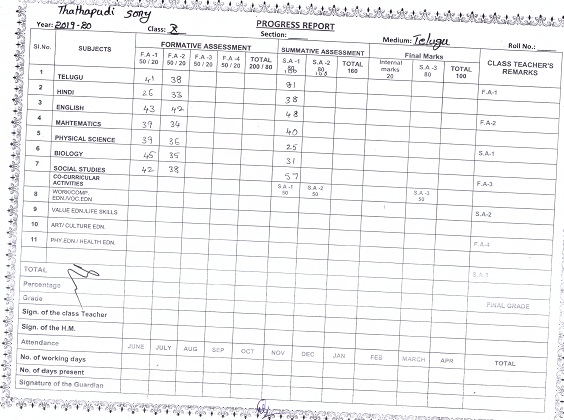 Thathapudi sony
PROGRESS REPORT
Year: 2019-20 Class: X Section: Medium: Telugu Roll No.:
Sl.No. SUBJECTS FORMATIVE ASSESSMENT SUMMATIVE ASSESSMENT Final Marks CLASS TEACHER'S REMARKS
F.A -1 50 / 20 F.A -2 50 / 20 F.A -3 50 / 20 F.A -4 50 / 20 TOTAL 200 / 80 S.A -1 S.A -2 80 TOTAL 160 Internal marks 20 S.A -3 80 TOTAL 100
1 TELUGU 41 38 81 F.A-1
2 HINDI 26 33 38
3 ENGLISH 43 42 48 F.A-2
4 MAHTEMATICS 39 34 40
5 PHYSICAL SCIENCE 39 36 25 S.A-1
6 BIOLOGY 45 35 31
7 SOCIAL STUDIES 42 38 57 F.A-3
CO-CURRICULAR ACTIVITIES S.A -1 50 S.A -2 50 S.A -3 50
8 WORK/COMP. EDN./VOC.EDN
9 VALUE EDN./LIFE SKILLS S.A-2
10 ART/ CULTURE EDN.
11 PHY.EDN / HEALTH EDN. F.A-4
TOTAL S.A-3
Percentage
Grade FINAL GRADE
Sign. of the class Teacher
Sign. of the H.M.
Attendance JUNE JULY AUG SEP OCT NOV DEC JAN FEB MARCH APR TOTAL
No. of working days
No. of days present
Signature of the Guardian